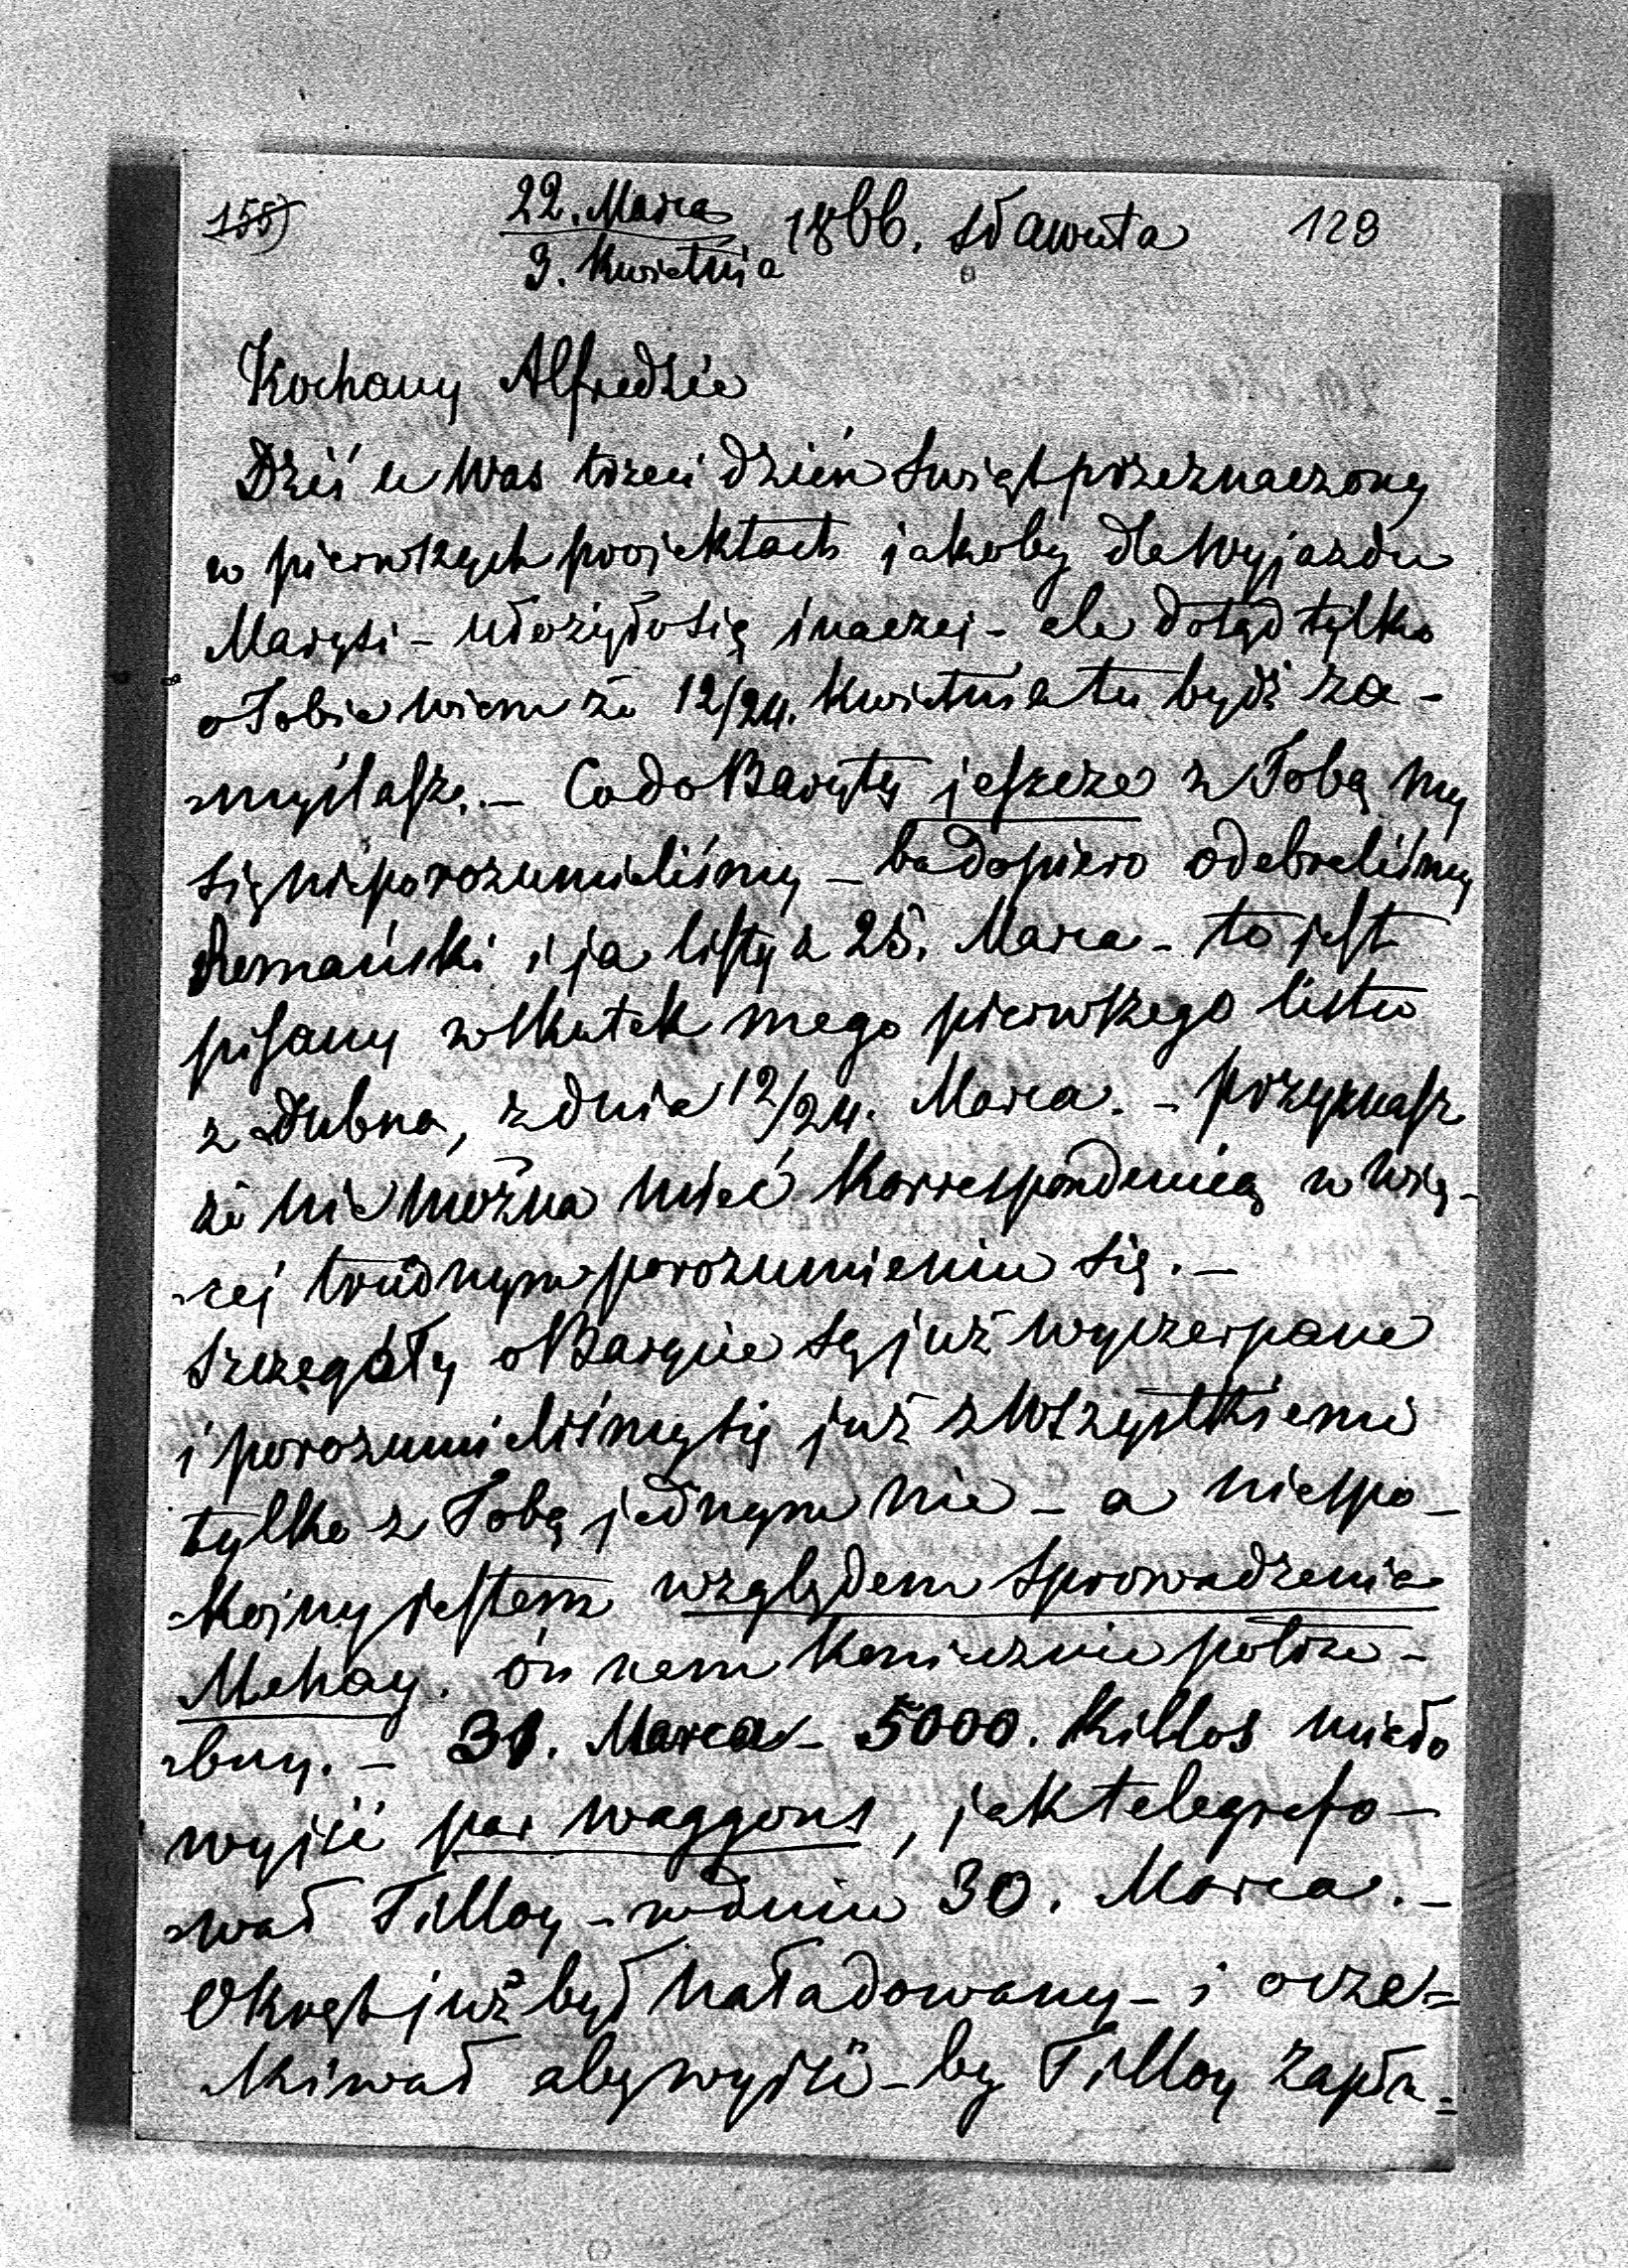 155) 22. Marca 1866. Sławuta 128
3. Kwietnia
Kochany Alfredzie
Dziś u Was trzeci dzień Swiąt przeznaczony
w pierwszych projektach jakoby dla wyjazdu
Marysi – ułożyło się inaczej – ale dotąd tylko
o Tobie wiem że 12/24. Kwietnia tu bydź za-
myślasz. – Co do Baryty jeszcze z Tobą my
się nieporozumieliśmy – bo dopiero odebraliśmy
Romański i ja listy z 25. Marca – to jest
pisany wskutek mego pierwszego listu
z Dubna, z dnia 12/24. Marca. – przyznasz
że nie można mieć Korrespondencią w wię-
cej trudnym porozumieniu się. –
Szczegóły o Barycie są już wyczerpane
i porozumieliśmy się już z wszystkiemi
tylko z Tobą jednym nie – a niespo-
kojny jestem względem sprowadzenia
Mehay. ón nam koniecznie potrze-
bny. – 31. Marca – 5000. Killos miało
wyjść par waggons, jak telegrafo-
wał Tilloy – w dniu 30. Marca. –
Okręt już był naładowany – i ocze=
kiwał aby wyjść – by Tilloy zapła=